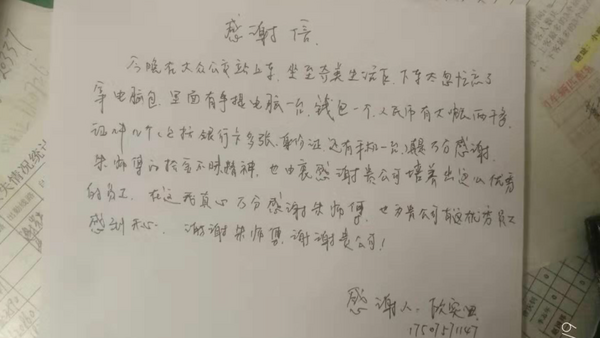 感谢信.
今晚在大众公交站上车,坐至奇美生活下,下车太急忘了
拿电脑包,里面有手提电脑一台,钱包一个,人民币有大概两千多,
证件几个包括银行卡多张,身份证,还有手机一台,万分感谢,
朱师傅的拾金不昧精神,也由衷感谢贵公司培养出这么优秀
的员工,在这里真心万分感谢朱师傅,也为贵公司有这优秀员工
感到开心,谢谢朱师傅,谢谢贵公司!
感谢人:欧
17507571147